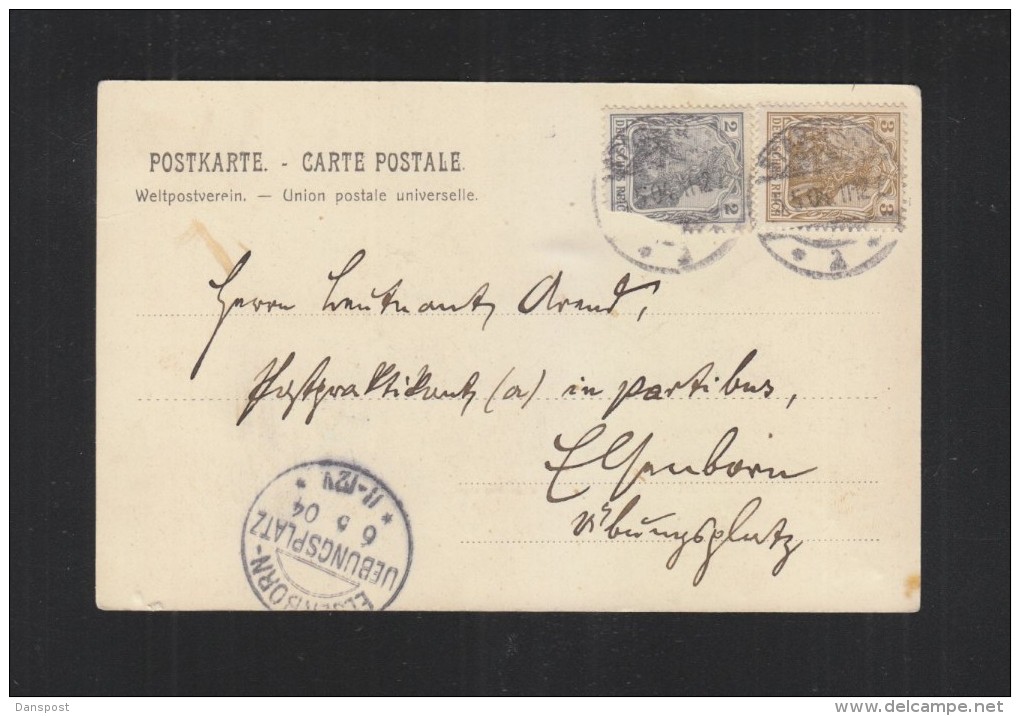 POSTKARTE. - CARTE POSTALE.
Weltpostverein. — Union postale universelle.
2 DEUTSCHES REICH 2
3 DEUTSCHES REICH 3
Herrn Leutnant Arend,
Postpraktikant (a) in partibus,
Elsenborn
Übungsplatz
ELSENBORN-
UEBUNGSPLATZ
6 5 04
* 11-12V *
Danspost
delcampe.net